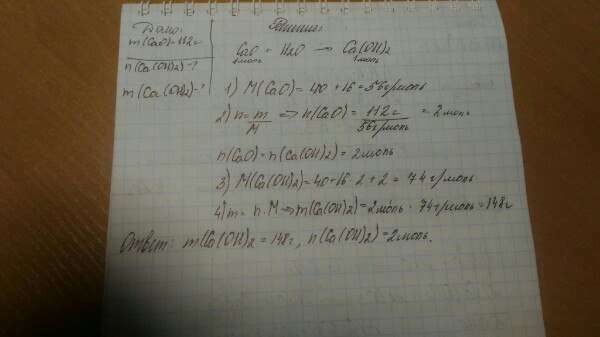 Дано:
m(CaO)=112г
n(Ca(OH)2)-?
m(Ca(OH)2)-?
Решение:
CaO + H2O → Ca(OH)2
1моль 1моль
1) M(CaO) = 40 + 16 = 56г/моль
2) n = m/M => n(CaO) = 112г/56г/моль = 2моль
n(CaO) = n(Ca(OH)2) = 2моль
3) M(Ca(OH)2) = 40+16·2+2 = 74г/моль
4) m = n·M => m(Ca(OH)2) = 2моль · 74г/моль = 148г
Ответ: m(Ca(OH)2 = 148г, n(Ca(OH)2) = 2моль.